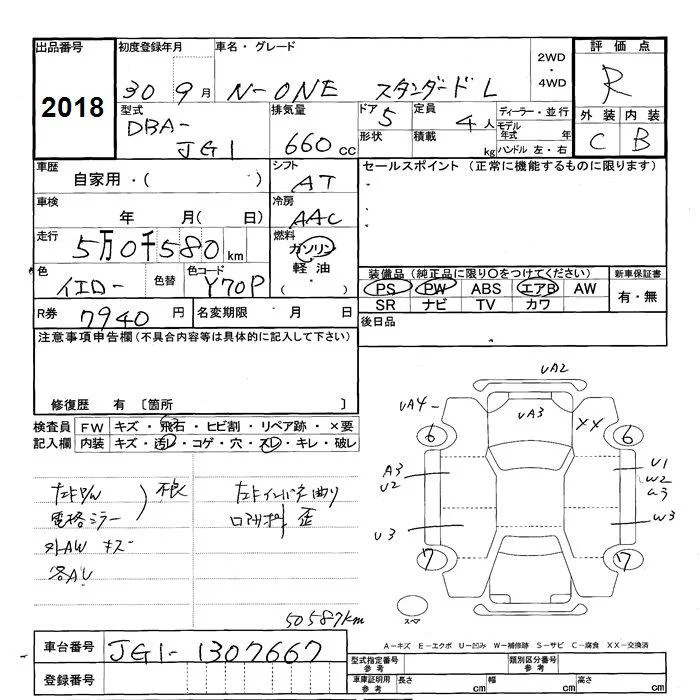 出品番号 初度登録年月 車名・グレード 2WD ・ 4WD 評価点
2018 30 9月 N-ONE スタンダードL R
型式 排気量 ドア 定員 ディーラー・並行 外装 内装
DBA- 5 4人 モデル年式 年 C B
JG1 660cc 形状 積載 kg ハンドル 左・右
車歴 シフト セールスポイント (正常に機能するものに限ります)
自家用・( ) AT
車検 冷房
年 月( 日) AAC
走行 5万0千580km 燃料
ガソリン
軽油
( ・ )
色 イエロー 色替 色コード Y70P
装備品 (純正品に限り○をつけてください) 新車保証書
PS PW ABS エアB AW 有・無
SR ナビ TV カワ
R券 7940円 名変期限 月 日 後日品
注意事項申告欄(不具合内容等は具体的に記入して下さい)
修復歴 有 [箇所 ]
検査員 FW キズ・飛石・ヒビ割・リペア跡・×要
記入欄 内装 キズ・汚レ・コゲ・穴・スレ・キレ・破レ
電格ミラー
外AW キズ
50587km
UA2
UA4
UA3
XX
6 6
A3 U2
U1 W2
U3
W3
7 7
スペア
A-キズ E-エクボ U-凹み W-補修跡 S-サビ C-腐食 XX-交換済
車台番号 JG1-1307667
登録番号
型式指定番号 参考 類別区分番号 参考
車庫証明用 参考 長さ cm 幅 cm 高さ cm